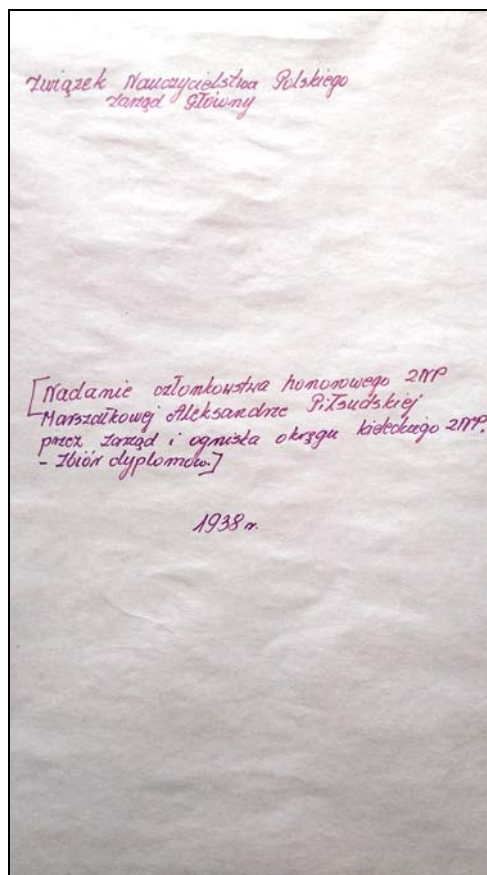 Związek Nauczycielstwa Polskiego
Zarząd Główny
[Nadanie członkowstwa honorowego ZNP
Marszałkowej Aleksandrze Piłsudskiej
przez zarząd i ogniska okręgu kieleckiego ZNP.
- Zbiór dyplomów.]
1938 r.